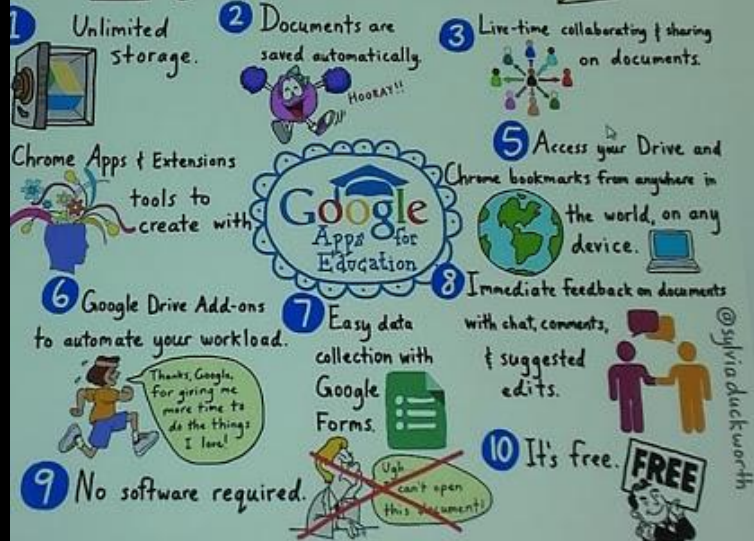 1 Unlimited
storage.
2 Documents are
saved automatically
HOORAY!!
3 Live-time collaborating & sharing
on documents.
Chrome Apps & Extensions
tools to
create with
Google
Apps for
Education
5 Access your Drive and
Chrome bookmarks from anywhere in
the world, on any
device.
6 Google Drive Add-ons
to automate your workload.
Thanks, Google,
for giving me
more time to
do the things
I love!
7 Easy data
collection with
Google
Forms.
8 Immediate feedback on documents
with chat, comments,
& suggested
edits.
9 No software required.
Ugh
can't open
this document!
10 It's free.
FREE
@sylviaduckworth